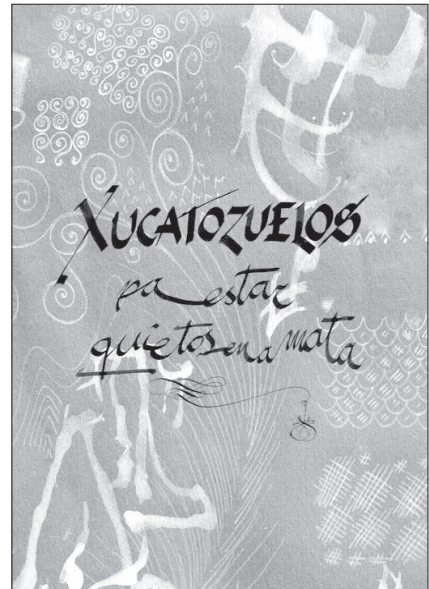 XUCATOZUELOS
pa estar
quietos en a mata